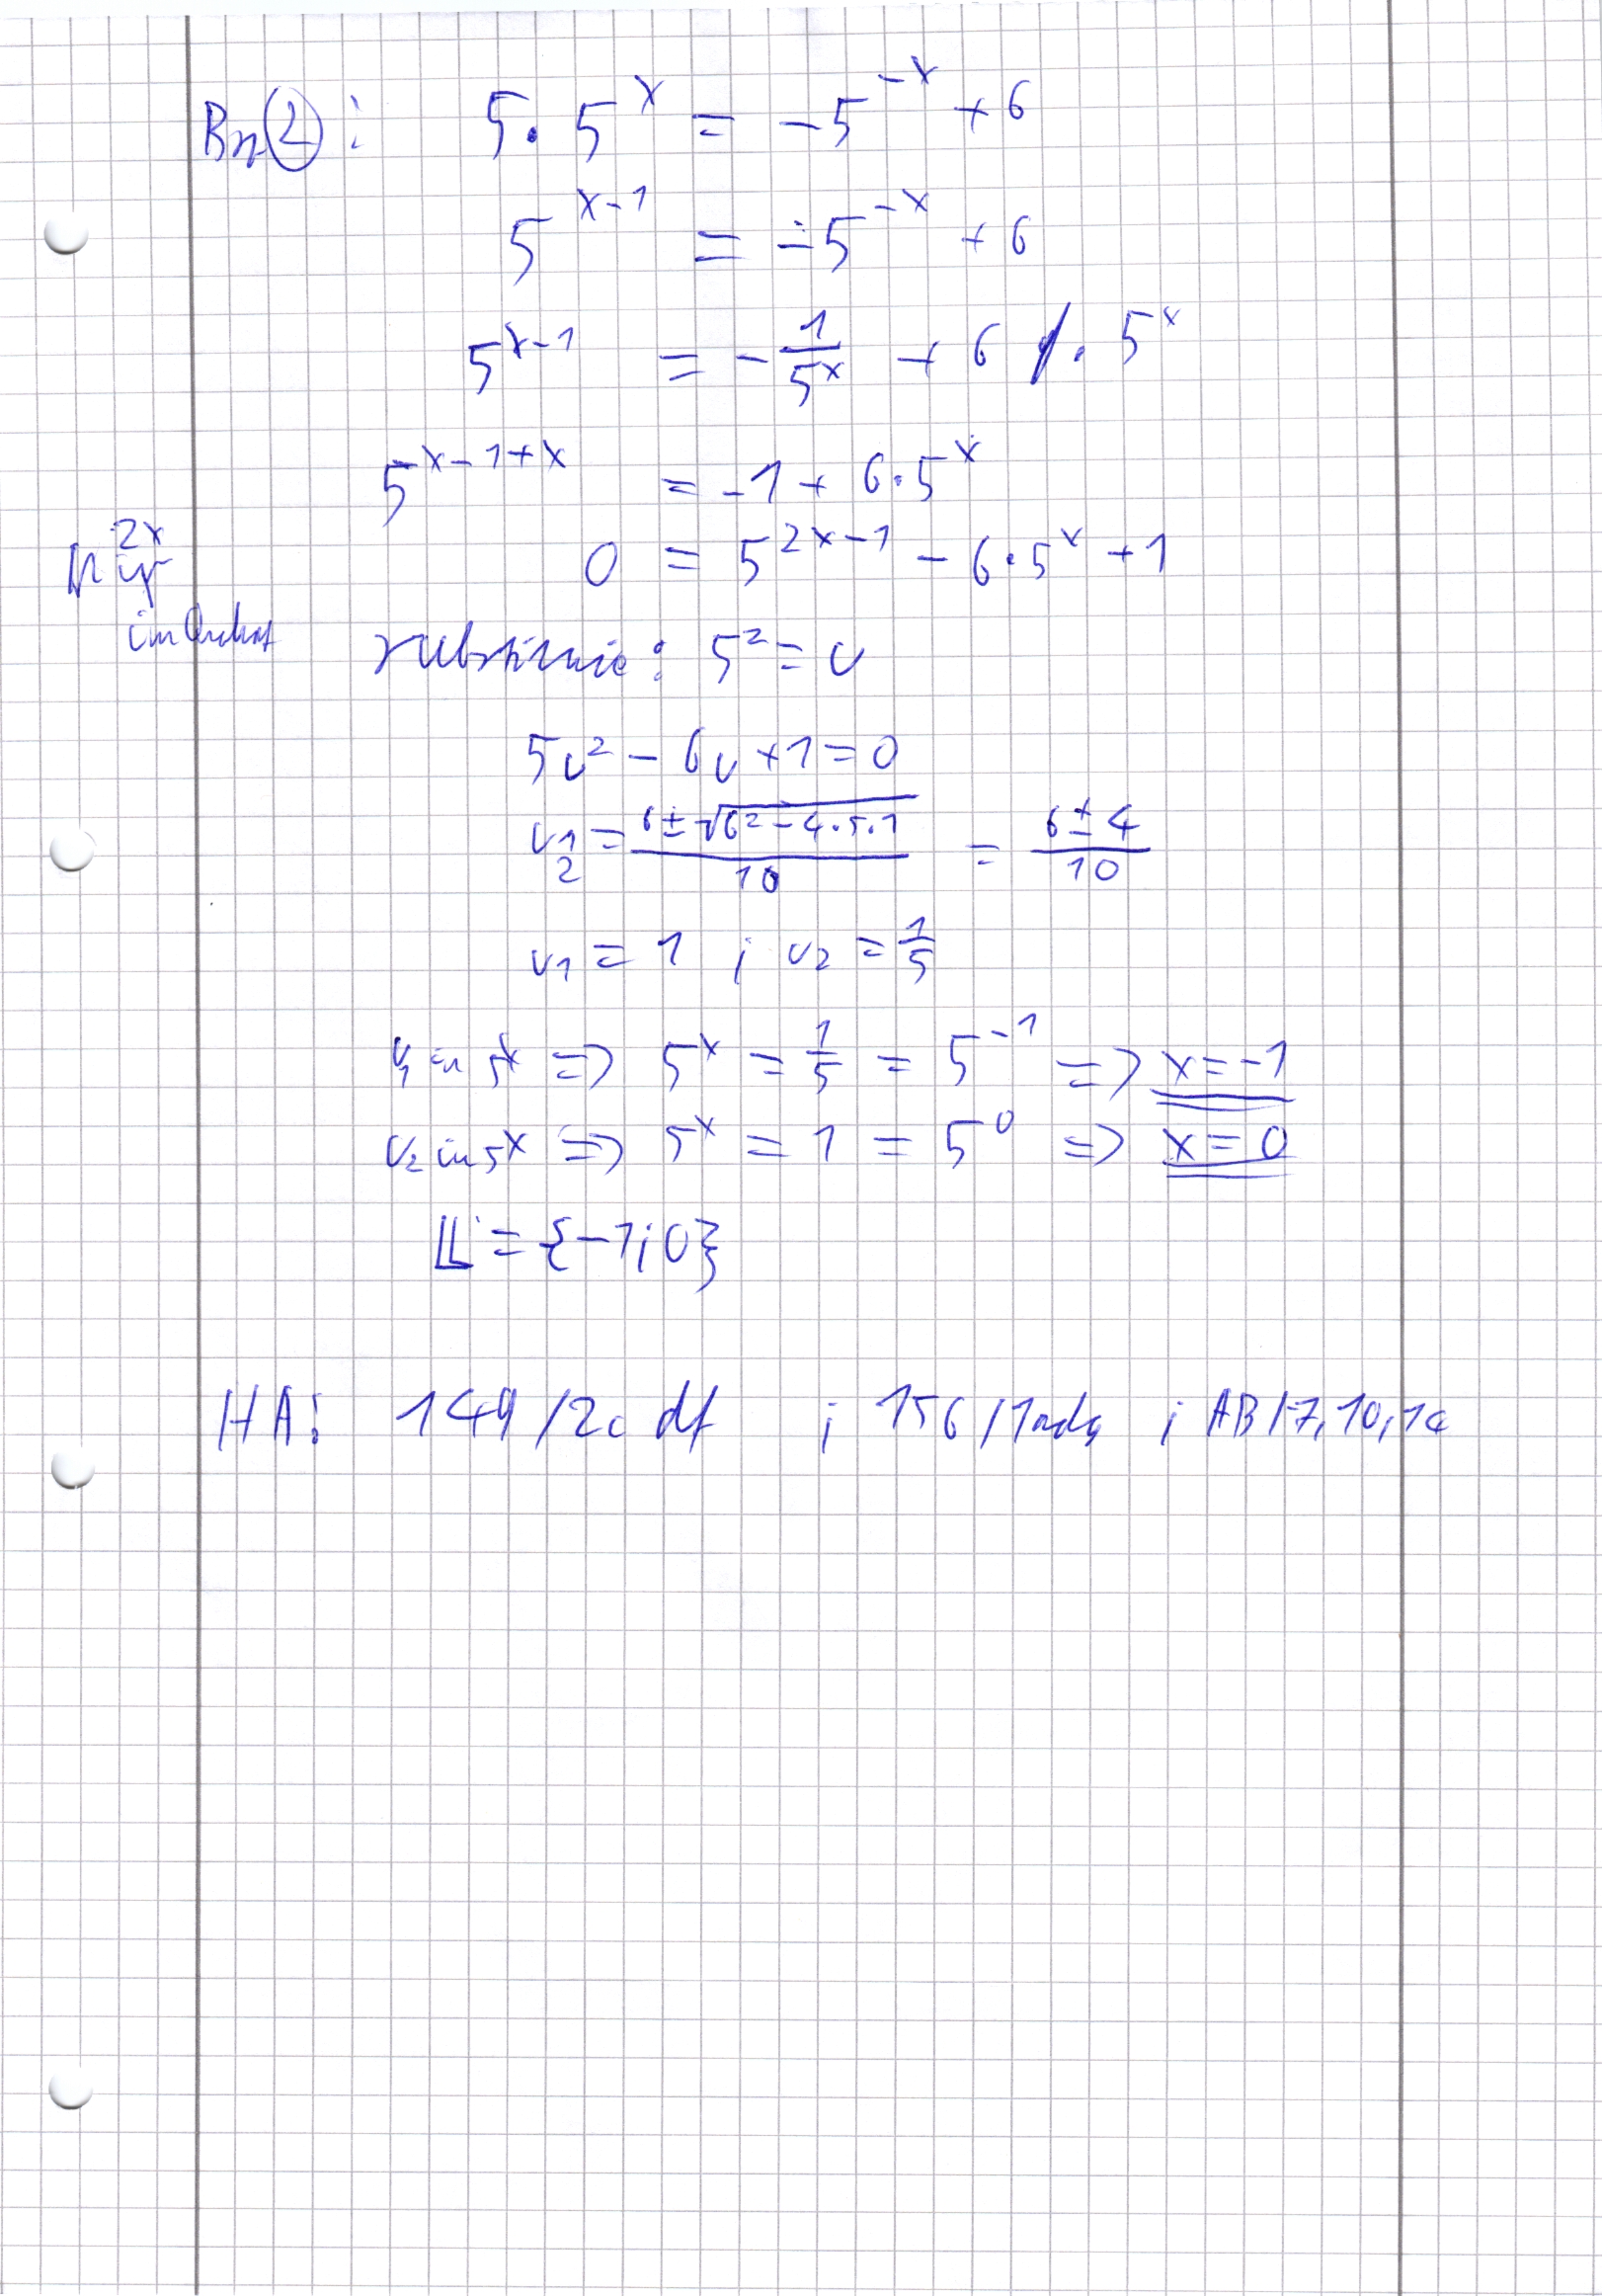 Bsp ② : 5 · 5^x = -5^-x + 6
5^x-1 = -5^-x + 6
5^x-1 = - 1/5^x + 6 | · 5^x
5^x-1+x = -1 + 6 · 5^x
0 = 5^2x-1 - 6 · 5^x + 1
2x
im
Substituiere : 5^2 = u
5u² - 6u + 1 = 0
u1/2 = (6 ± √(6² - 4 · 5 · 1))/10 = (6 ± 4)/10
u1 = 1 ; u2 = 1/5
u1 in 5^x => 5^x = 1/5 = 5^-1 => x = -1
u2 in 5^x => 5^x = 1 = 5^0 => x = 0
𝕃 = {-1; 0}
HA: 149 /2c df ; 156 / ; AB / 7, 10, 14